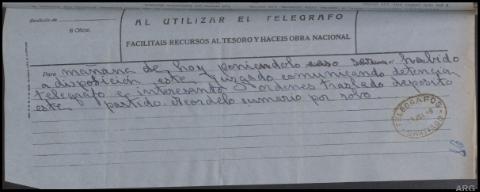 Recibido de
El Oficial,
AL UTILIZAR EL TELEGRAFO
FACILITAIS RECURSOS AL TESORO Y HACEIS OBRA NACIONAL
Para mañana de hoy poniendolo caso habido
a disposición este juzgado comunicando detención
telegrafo e interesando ordenes traslado deposito
este partido. Acordelo sumario por robo.
TELEGRAFOS
ARG